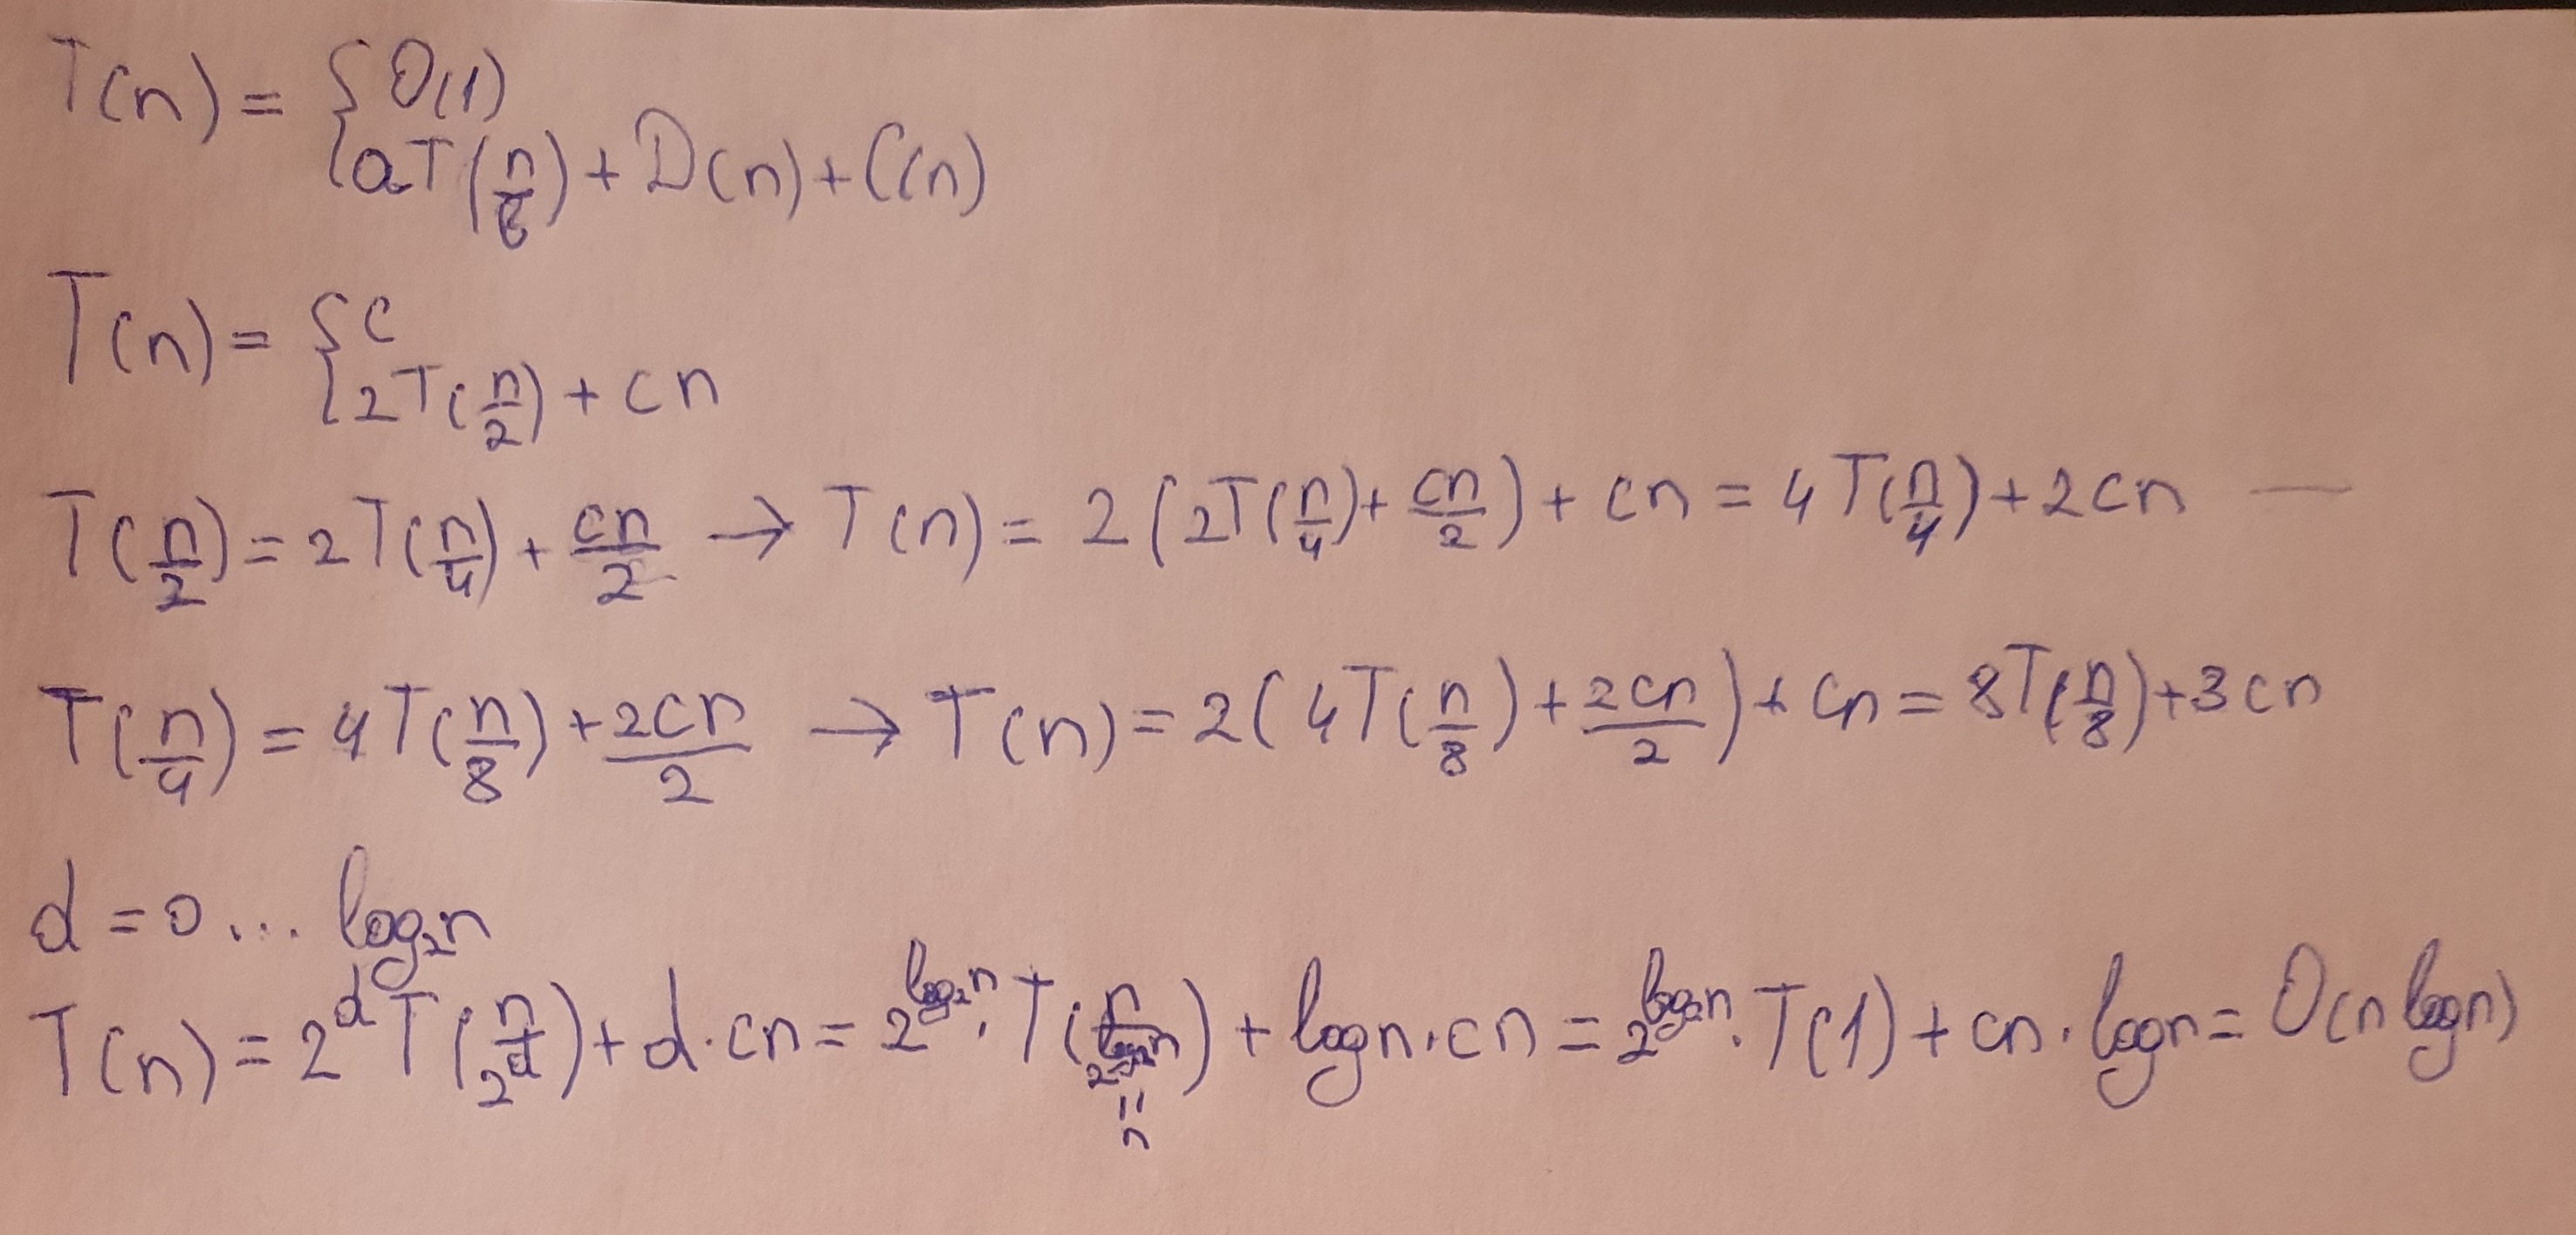 T(n) = { O(1)
aT(n/b) + D(n) + C(n)
T(n) = { c
2T(n/2) + cn
T(n/2) = 2T(n/4) + cn/2 → T(n) = 2(2T(n/4) + cn/2) + cn = 4T(n/4) + 2cn —
T(n/4) = 4T(n/8) + 2cn/2 → T(n) = 2(4T(n/8) + 2cn/2) + cn = 8T(n/8) + 3cn
d = 0 ... log₂n
T(n) = 2^d T(n/2^d) + d·cn = 2^(log₂n) · T(n/2^(log₂n)) + logn·cn = 2^(log₂n) · T(1) + cn·logn = O(n logn)
=
n